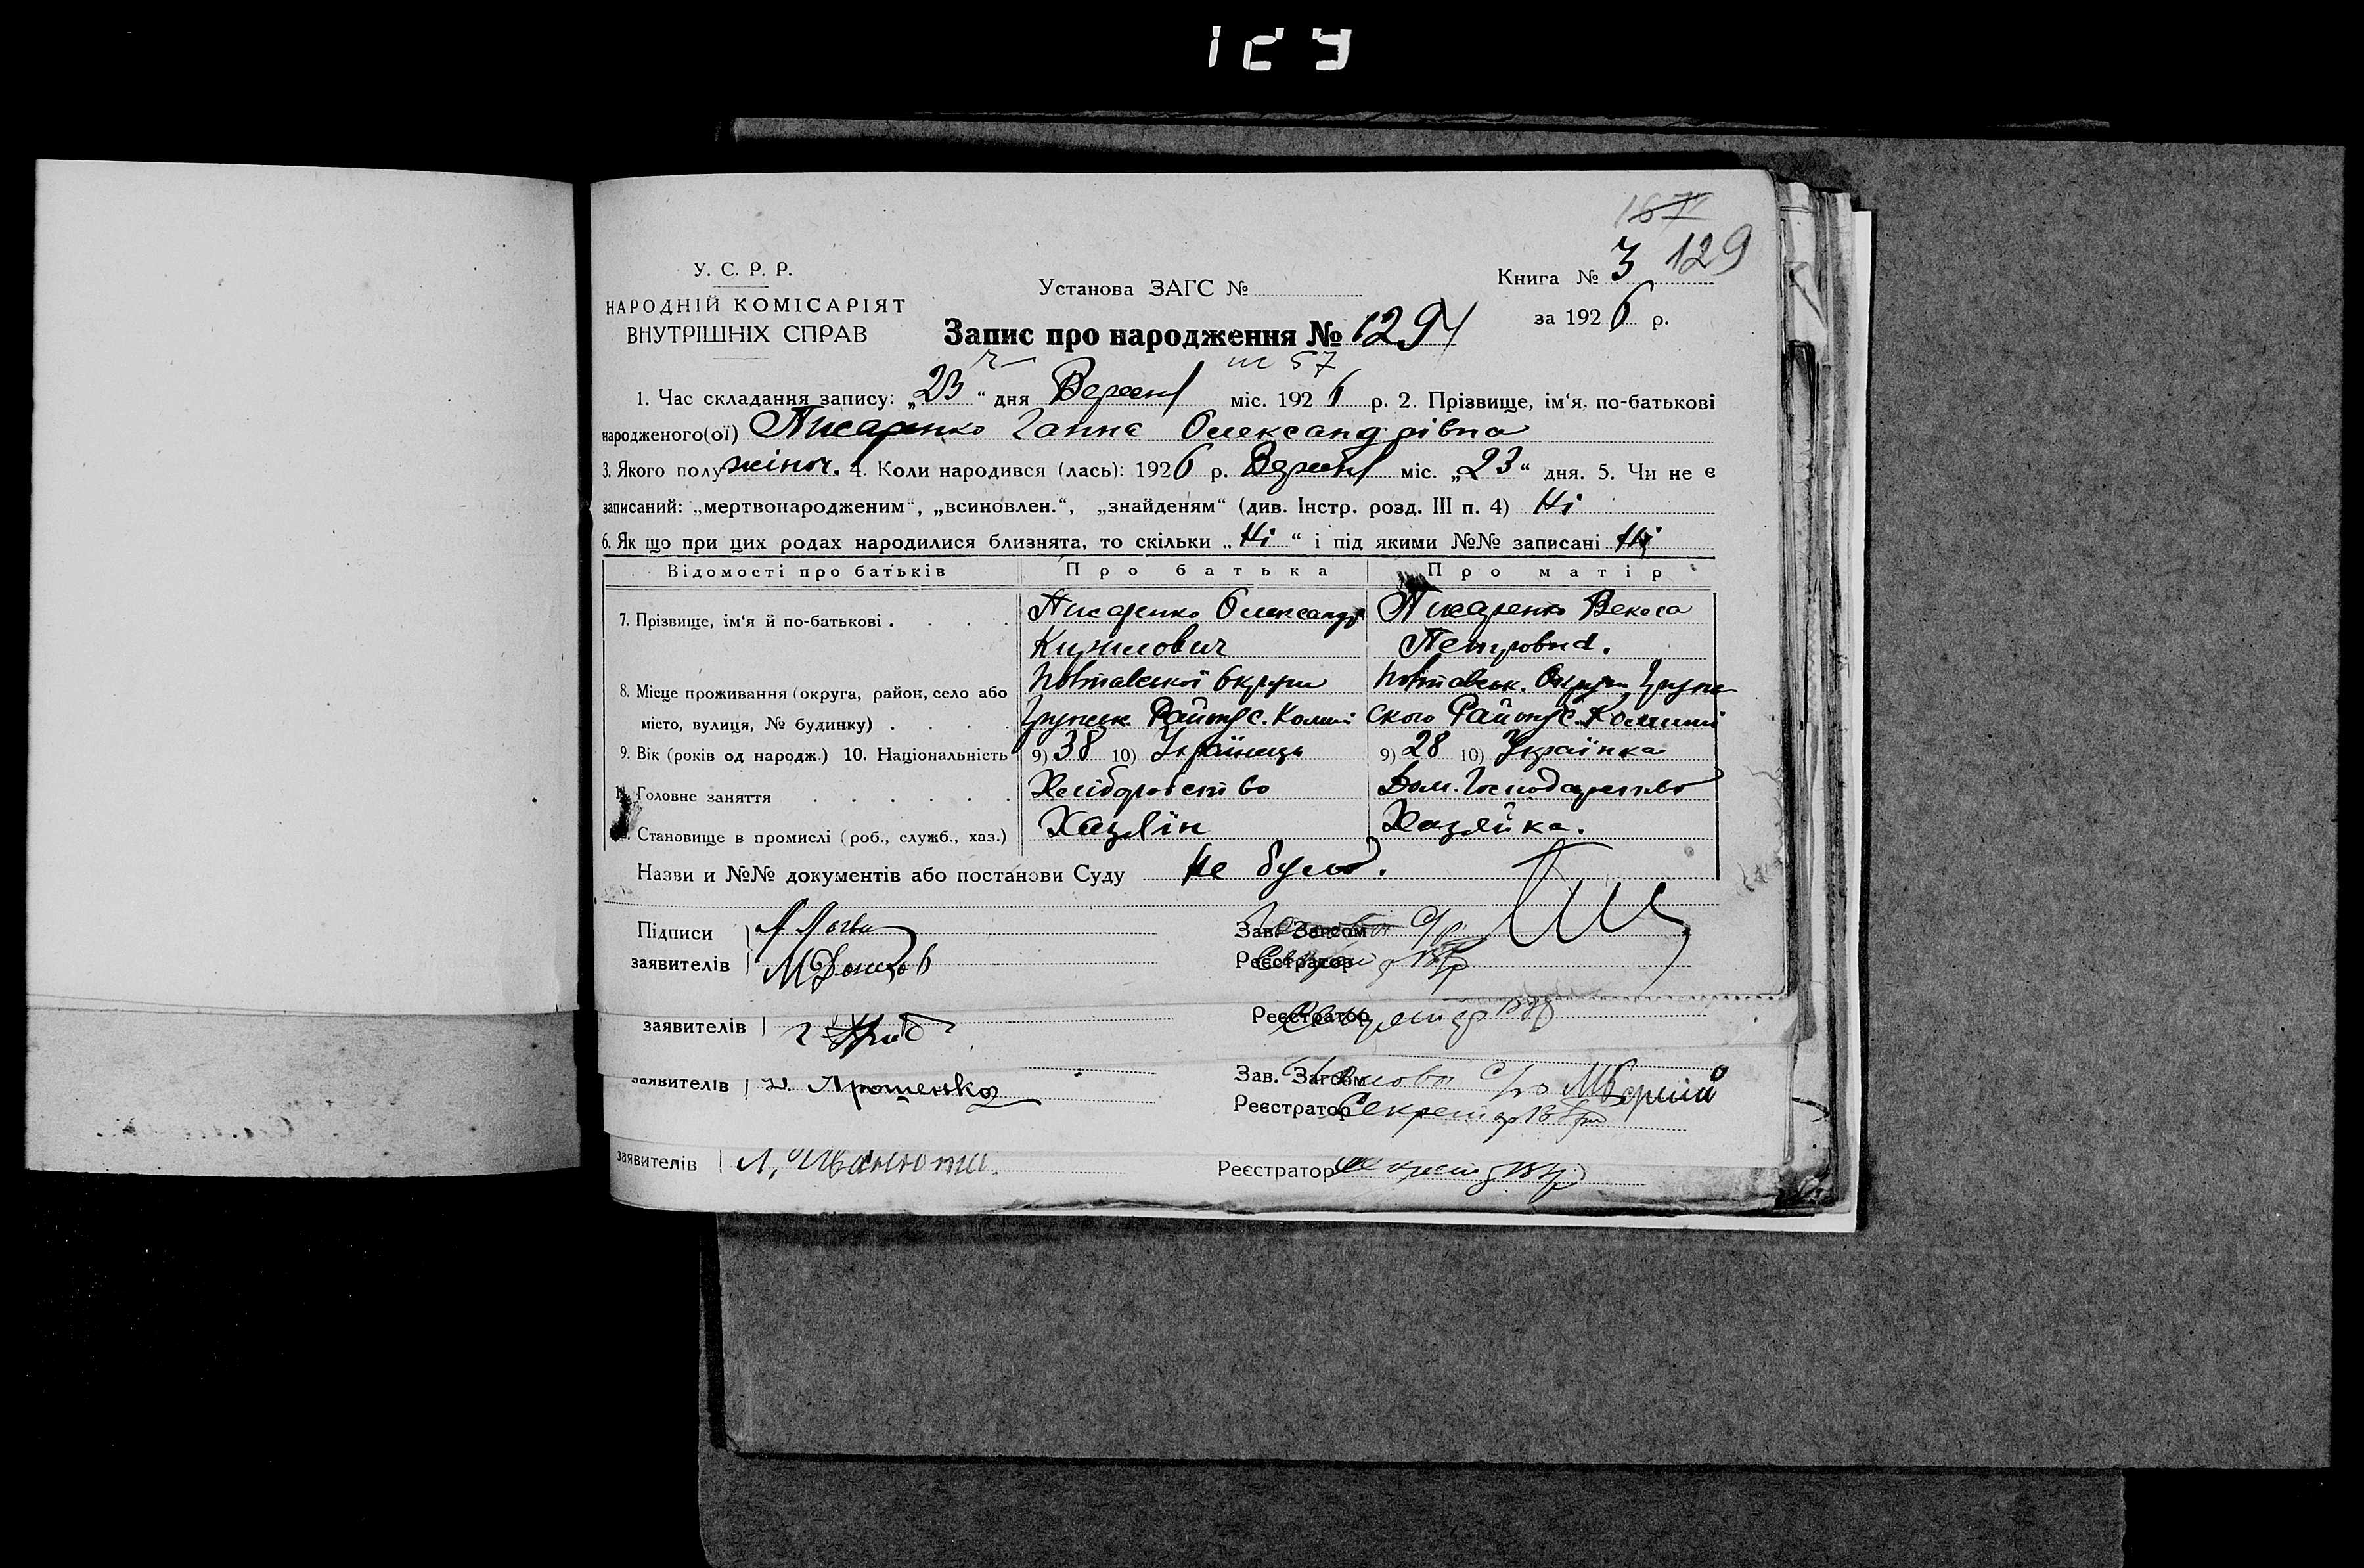 129
У. С. Р. Р.
НАРОДНІЙ КОМІСАРІЯТ
ВНУТРІШНІХ СПРАВ
Установа ЗАГС №
Книга № 3 129
за 1926 р.
Запис про народження № 129
1. Час складання запису: „23“ дня Вересня міс. 1926 р. 2. Прізвище, ім‘я, по-батькові
народженого(ої) Писаренко Ганна Олександрівна
3. Якого полу жіноч. 4. Коли народився (лась): 1926 р. Вересня міс. „23“ дня. 5. Чи не є
записаний: „мертвонародженим“, „всиновлен.“, „знайденям“ (див. Інстр. розд. III п. 4) Ні
6. Як що при цих родах народилися близнята, то скільки „Ні“ і під якими №№ записані Ні
Відомості про батьків Про батька Про матір
7. Прізвище, ім‘я й по-батькові . . . . Писаренко Олександр Писаренко
Кирилович Петровна.
8. Місце проживання (округа, район, село або Полтавської округи Полтавськ. Округи
місто, вулиця, № будинку) . . . . Району с. ского Району с.
9. Вік (років од народж.) 10. Національність 9) 38 10) Українець 9) 28 10) Українка
11. Головне заняття . . . . . . Хліборобство Дом. Господарство
Становище в промислі (роб., служб., хаз.) Хазяїн Хазяйка.
Назви и №№ документів або постанови Суду Не було.
Підписи Зав. Загсом
заявителів Реєстратор
заявителів Реєстратор
заявителів Ярошенко Зав. Загсом Голова
Реєстратор Секретар
заявителів Реєстратор Секретар